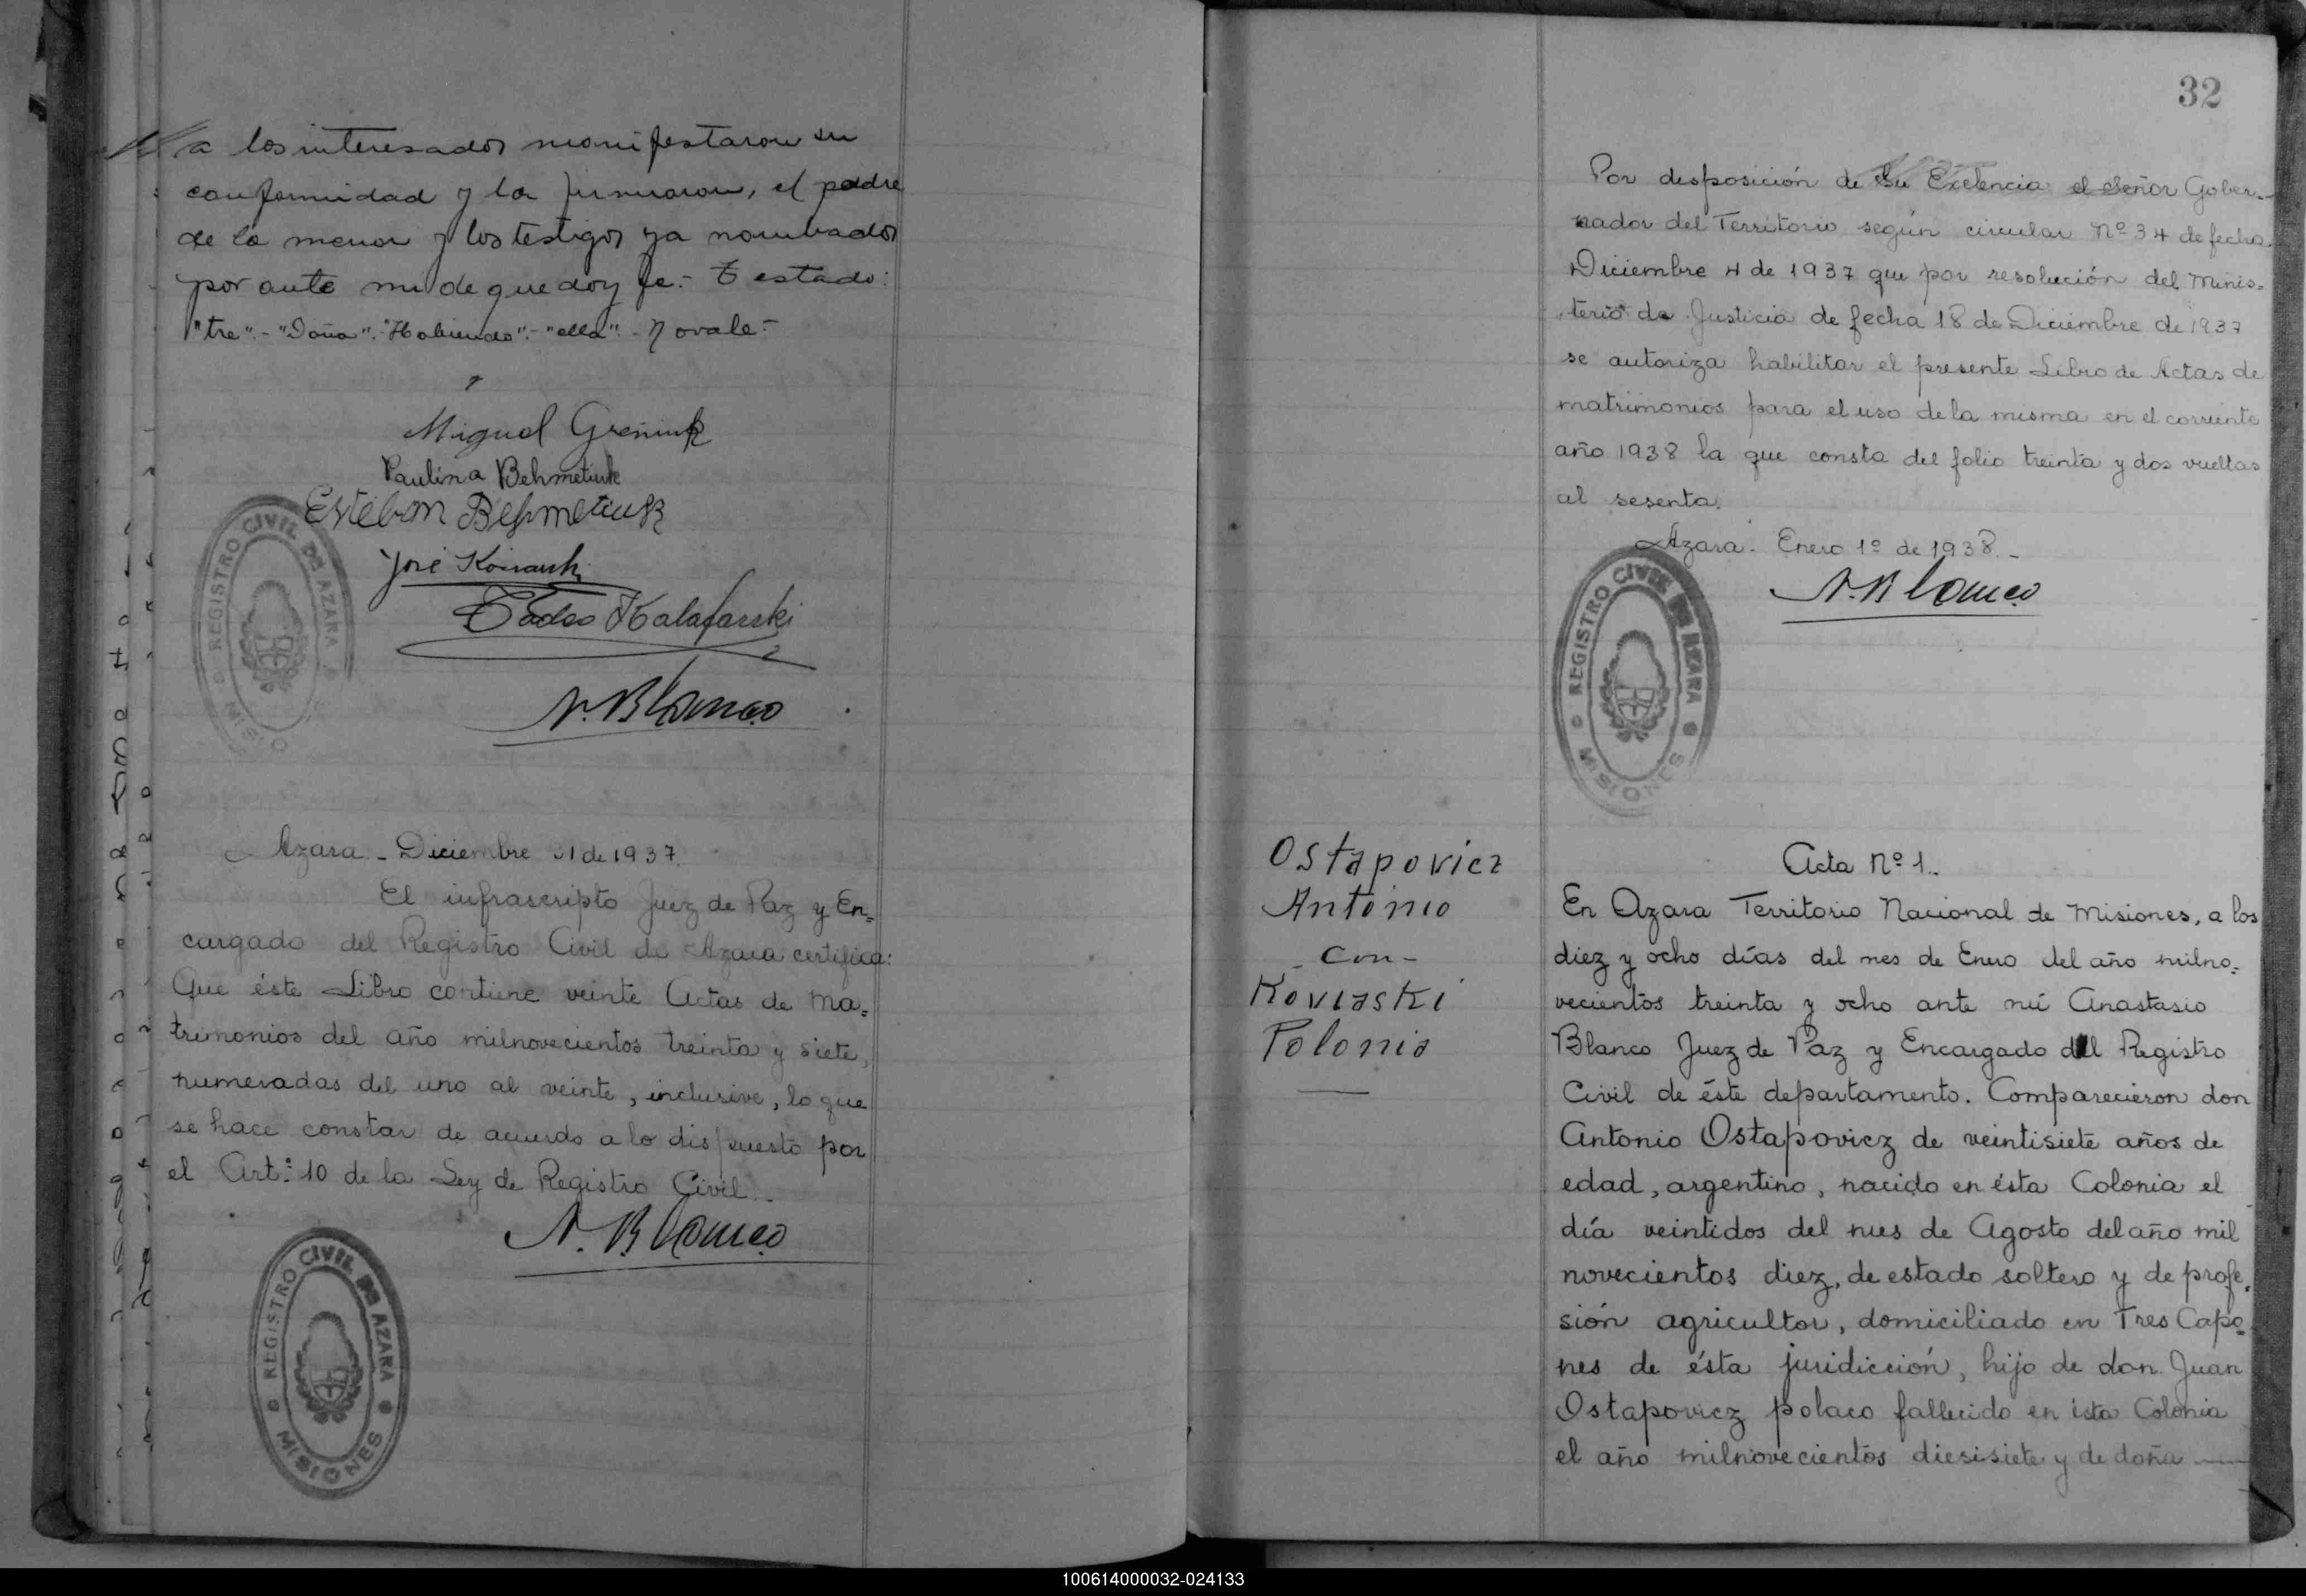 a los interesados manifestaron su
conformidad y la firmaron, el padre
de la menor y los testigos ya nombrados
por ante mi de que doy fe.- Testado:
"tre".- "Doña".- "Habiendo".- "ella".- No vale.-
Miguel Greñiuk
Paulina Behmetiuk
Esteban Behmetiuk
José
Tadeo Kalafarski
A. Blanco
REGISTRO CIVIL DE AZARA
MISIO
Azara - Diciembre 31 de 1937.
El infrascripto Juez de Paz y En=
cargado del Registro Civil de Azara certifica:
Que éste Libro contiene veinte Actas de Ma=
trimonios del año milnovecientos treinta y siete,
numeradas del uno al veinte, inclusive, lo que
se hace constar de acuerdo a lo dispuesto por
el Art.º 10 de la Ley de Registro Civil.-
A. Blanco
REGISTRO CIVIL DE AZARA
MISIONES
32
Por disposición de Su Exelencia el Señor Gober-
nador del Territorio según circular Nº 34 de fecha
Diciembre 4 de 1937 que por resolución del Minis=
terio de Justicia de fecha 18 de Diciembre de 1937
se autoriza habilitar el presente Libro de Actas de
matrimonios para el uso de la misma en el corriente
año 1938 la que consta del folio treinta y dos vueltas
al sesenta.
Azara. Enero 1º de 1938.-
A. Blanco
REGISTRO CIVIL DE AZARA
MISIONES
Ostapovicz
Antonio
- Con -
Koviaski
Polonia
Acta Nº 1.-
En Azara Territorio Nacional de Misiones, a los
diez y ocho días del mes de Enero del año milno=
vecientos treinta y ocho ante mí Anastasio
Blanco Juez de Paz y Encargado del Registro
Civil de éste departamento. Comparecieron don
Antonio Ostapovicz de veintisiete años de
edad, argentino, nacido en ésta Colonia el
día veintidos del mes de Agosto del año mil
novecientos diez, de estado soltero y de profe=
sión agricultor, domiciliado en Tres Capo=
nes de ésta juridicción, hijo de don Juan
Ostapovicz polaco fallecido en ésta Colonia
el año milnovecientos diesisiete y de doña
100614000032-024133